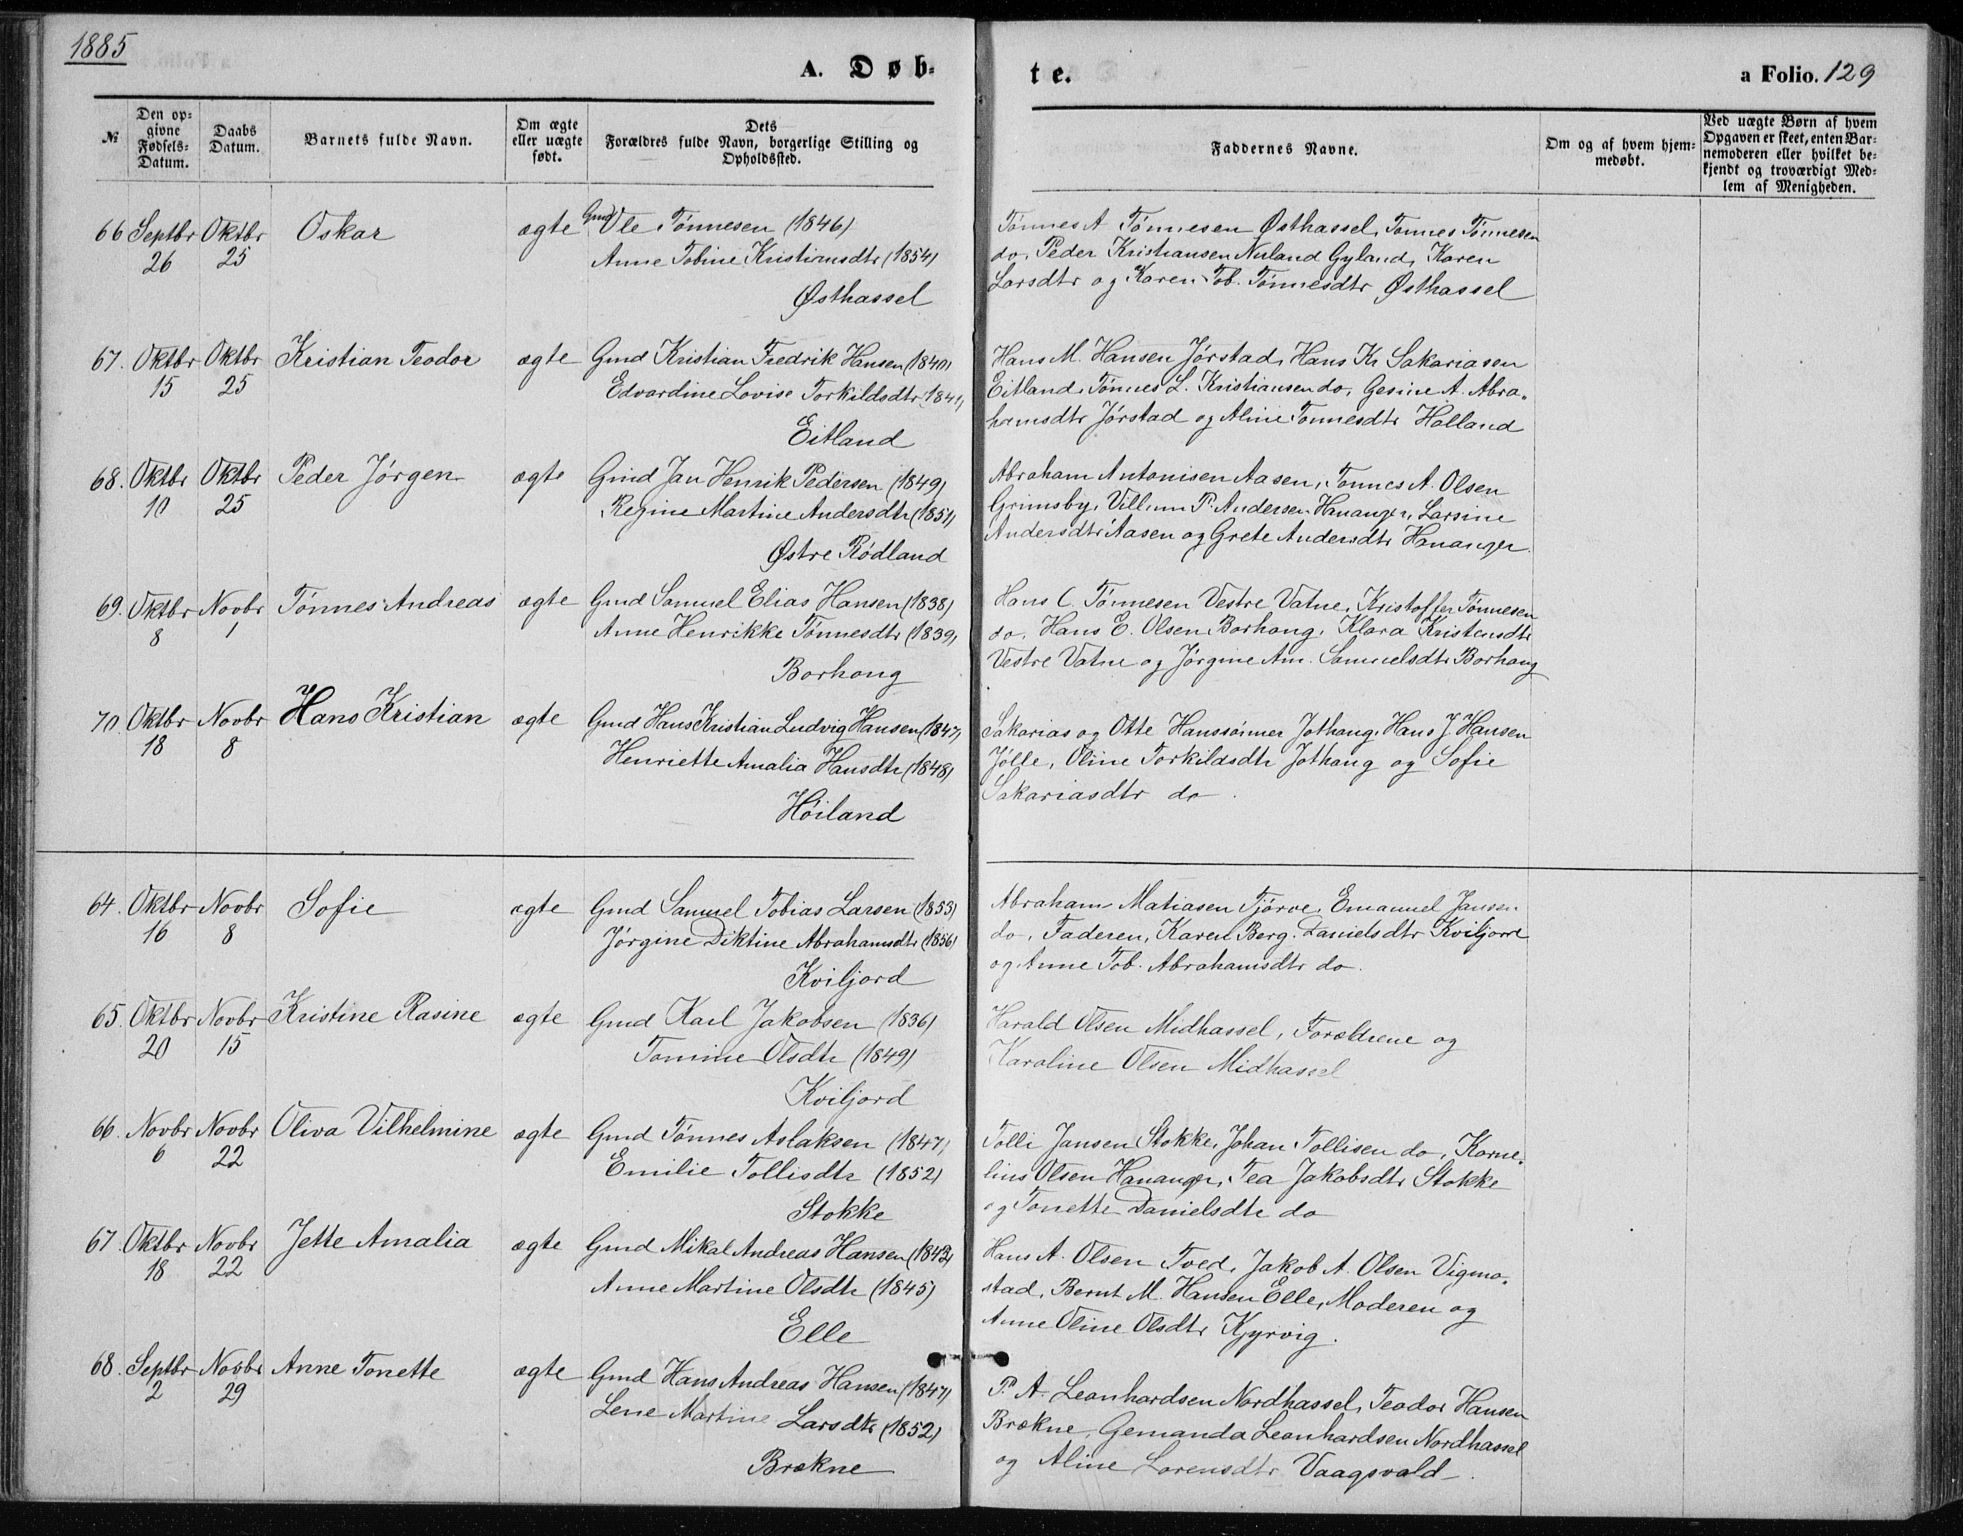 1885
A. Døb-
te.
a Folio. 129
№
Den op-
givne
Fødsels-
Datum.
Daabs
Datum.
Barnets fulde Navn.
Om ægte
eller uægte
født.
Dets
Forældres fulde Navn, borgerlige Stilling og
Opholdssted.
Faddernes Navne.
Om og af hvem hjem-
medøbt.
Ved uægte Børn af hvem
Opgaven er skeet, enten Bar-
nemoderen eller hvilket be-
kjendt og troværdigt Med-
lem af Menigheden.
66 Septbr Oktbr Oskar ægte Gmd Ole Tønnesen (1846)
26 25 Anne Tobine Kristiansdtr (1854)
Østhassel
Tønnes A Tønnesen Østhassel, Tønnes Tønnesen
do, Peder Kristiansen Nuland Gyland, Karen
Larsdtr og Karen Tob. Tønnesdtr Østhassel
67. Oktbr Oktbr Kristian Teodor ægte Gmd Kristian Fredrik Hansen (1840)
15 25 Edvardine Lovise Torkildsdtr (1841)
Eitland
Hans M. Hansen Jørstad, Hans Kr Sakariasen
Eitland, Tønnes L. Kristiansen do, Gesine A. Abra-
hamsdtr Jørstad og Aline Tønnesdtr Holland
68. Oktbr Oktbr Peder Jørgen ægte Gmd Jan Henrik Pedersen (1849)
10 25 Regine Martine Andersdtr (1851)
Østre Rødland
Abraham Antonisen Aasen, Tønnes A. Olsen
Grimsby, Villum P. Andersen Hananger, Larsine
Andersdtr Aasen og Grete Andersdtr Hananger.
69. Oktbr Novbr Tønnes Andreas ægte Gmd Samuel Elias Hansen (1838)
8 1 Anne Henrikke Tønnesdtr (1839)
Borhaug
Hans C. Tønnesen Vestre Vatne, Kristoffer Tønnesen
do, Hans E. Olsen Borhaug, Klara Kristensdtr
Vestre Vatne og Jørgine Am. Samuelsdtr Borhaug
70. Oktbr Novbr Hans Kristian ægte Gmd Hans Kristian Ludvig Hansen (1847)
18 8 Henriette Amalia Hansdtr (1848)
Høiland
Sakarias og Otte Hanssønner Jothaug, Hans J. Hansen
Jølle, Oline Torkildsdtr Jothaug og Sofie
Sakariasdtr do.
64. Oktbr Novbr Sofie ægte Gmd Samuel Tobias Larsen (1853)
16 8 Jørgine Diktine Abrahamsdtr (1856)
Kviljord
Abraham Matiasen Tjørve, Emanuel Jansen
do, Faderen, Karen Berg. Danielsdtr Kviljord
og Anne Tob. Abrahamsdtr do.
65. Oktbr Novbr Kristine Rasine ægte Gmd Karl Jakobsen (1836)
20 15 Tomine Olsdtr (1849)
Kviljord
Harald Olsen Midhassel, Forældrene og
Karoline Olsen Midhassel
66. Novbr Novbr Oliva Vilhelmine ægte Gmd Tønnes Aslaksen (1847)
6 22 Emilie Tollisdtr (1852)
Stokke
Tolli Jansen Stokke, Johan Tollisen do, Korne-
lius Olsen Hananger, Tea Jakobsdtr Stokke
og Tonette Danielsdtr do
67 Oktbr Novbr Jette Amalia ægte Gmd Mikal Andreas Hansen (1842)
18 22 Anne Martine Olsdtr (1845)
Elle
Hans A. Olsen Tved, Jakob A. Olsen Vigmo-
stad, Bernt M. Hansen Elle, Moderen og
Anne Oline Olsdtr Kjyrvig.
68. Septbr Novbr Anne Tonette ægte Gmd Hans Andreas Hansen (1847)
2 29 Lene Martine Larsdtr (1852)
Brækne
P. A. Leonhardsen Nordhassel, Teodor Hansen
Brækne, Gemanda Leonhardsen Nordhassel
og Aline Lorensdtr Vaagsvold.